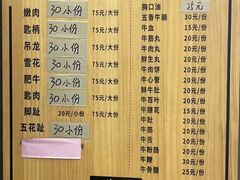 嫩肉 30小份 75元/大份
匙柄 30小份 75元/大份
吊龙 30小份 75元/大份
雪花 30小份 75元/大份
肥牛 30小份 75元/大份
匙肉 30小份 75元/大份
脚趾 20元/小份 50元/大份
五花趾 30小份
胸口油 15元
五香牛腩 30元/份
牛血 15元/份
牛筋丸 20元/份
牛肉丸 20元/份
牛肉饼 20元/份
牛心管 20元/份
牛肚 20元/份
牛百叶 20元/份
牛腰花 20元/份
牛肚 20元/份
牛筋 20元/份
牛舌 20元/份
牛粉肠 20元/份
牛鞭 30元/份
牛骨髓 25元/份